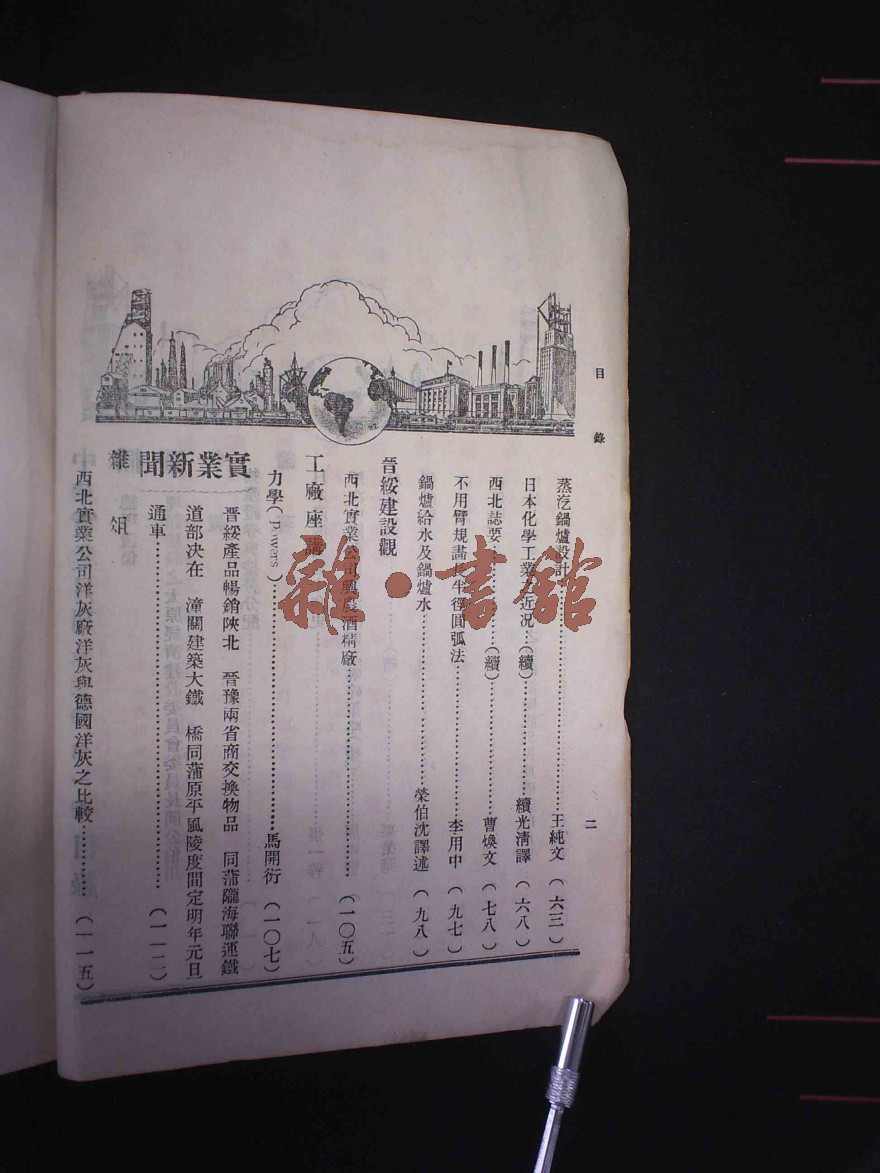 目錄
二
蒸汽鍋爐設計…………王純文(六三)
日本化學工業之近況…(續)…………續光清譯(六八)
西北誌要…………(續)…………曹煥文(七八)
不用臂規畫長半徑圓弧法…………李用中(九七)
鍋爐給水及鍋爐水…………榮伯沈譯述(九八)
晉綏建設觀
西北實業公司興農酒精廠…………(一〇五)
工廠座講
力學(powers)…………馬開衍(一〇七)
實業新聞
晉綏產品暢銷陝北 晉豫兩省商交換物品 同蒲隴海聯運鐵
道部决在 潼關建築大鐵 橋同蒲原平風陵度間定明年元旦
通車…………(一一二)
雜俎
西北實業公司洋灰廠洋灰與德國洋灰之比較…………(一一五)
雜·書館